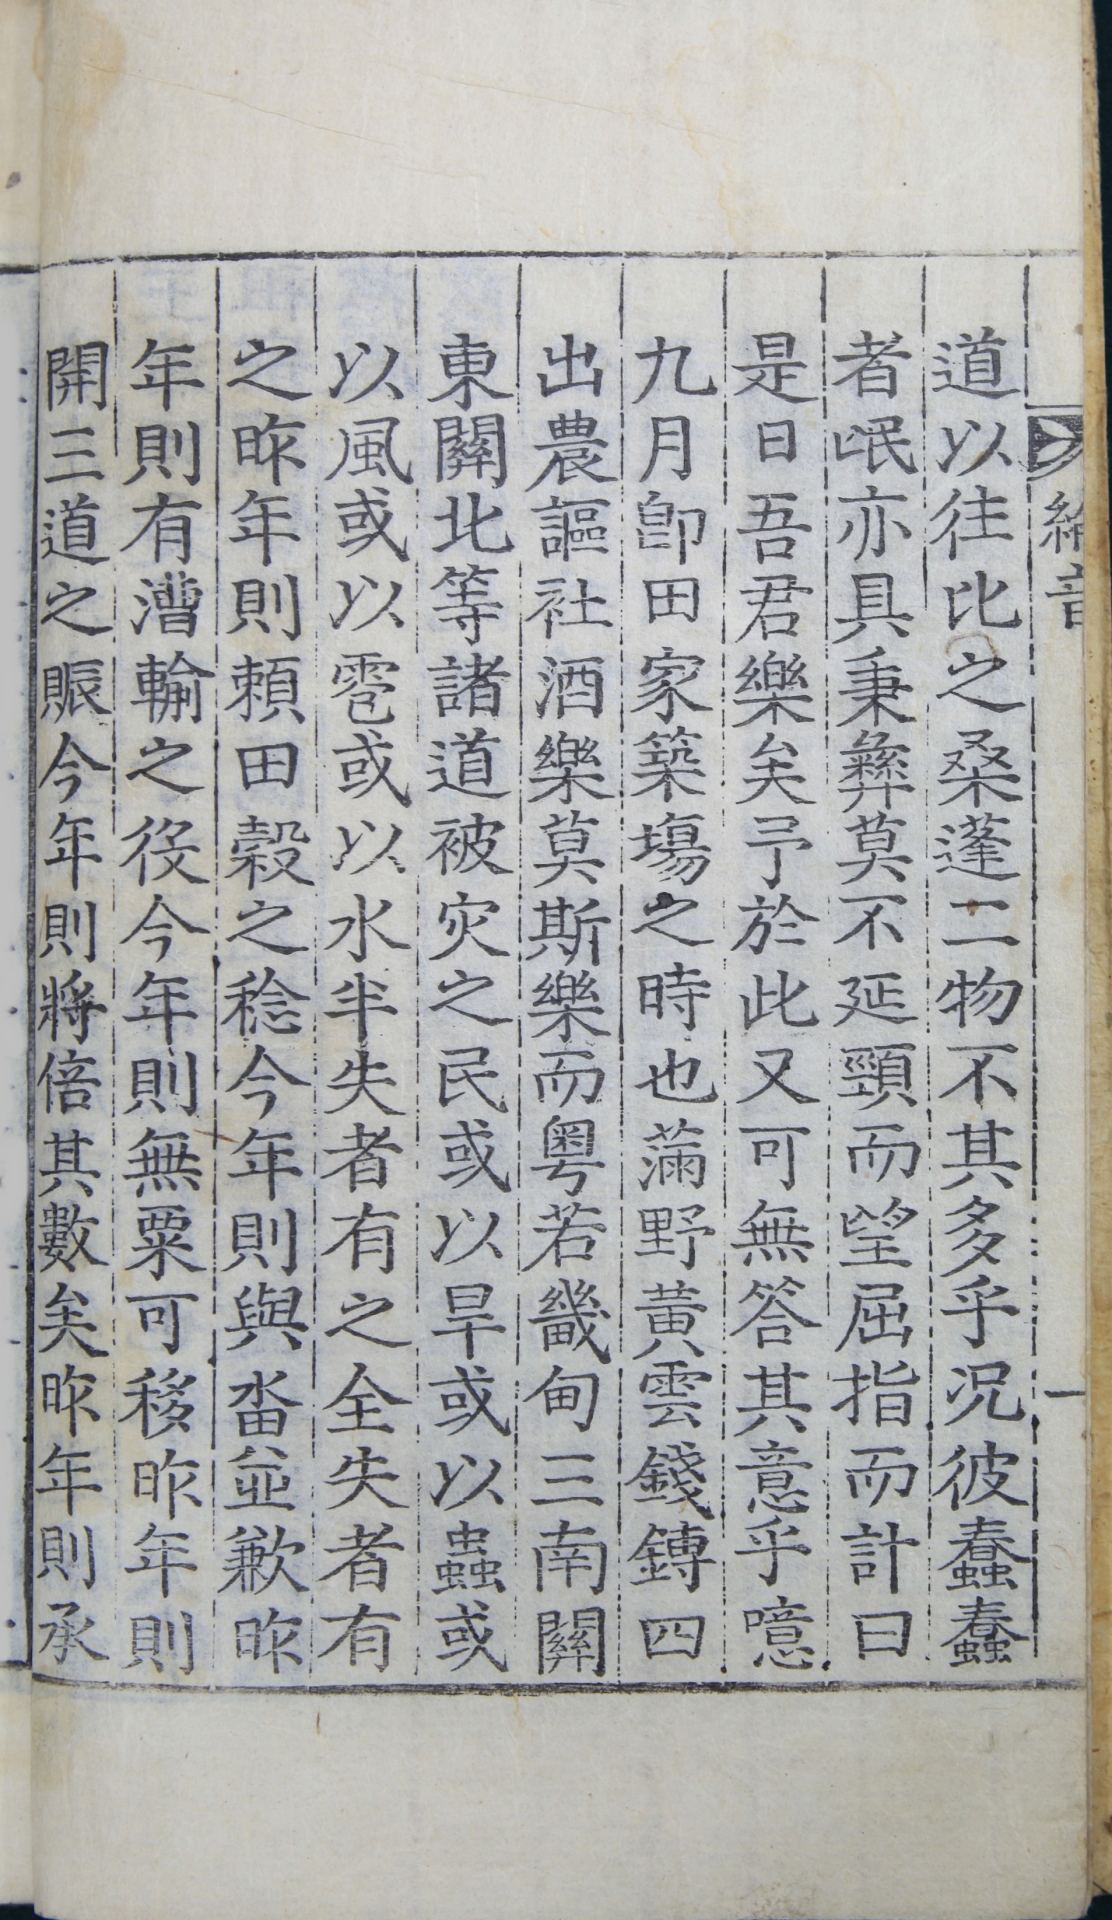 綸音
一
道以往比之桑蓬二物不其多乎况彼蠢蠢
者氓亦具秉彝莫不延頸而望屈指而計曰
是日吾君樂矣予於此又可無答其意乎噫
九月卽田家築場之時也滿野黃雲錢鎛四
出農謳社酒樂莫斯樂而粤若畿甸三南關
東關北等諸道被灾之民或以旱或以蟲或
以風或以雹或以水半失者有之全失者有
之昨年則賴田穀之稔今年則與畓並歉昨
年則有漕輸之役今年則無粟可移昨年則
開三道之賑今年則將倍其數矣昨年則承